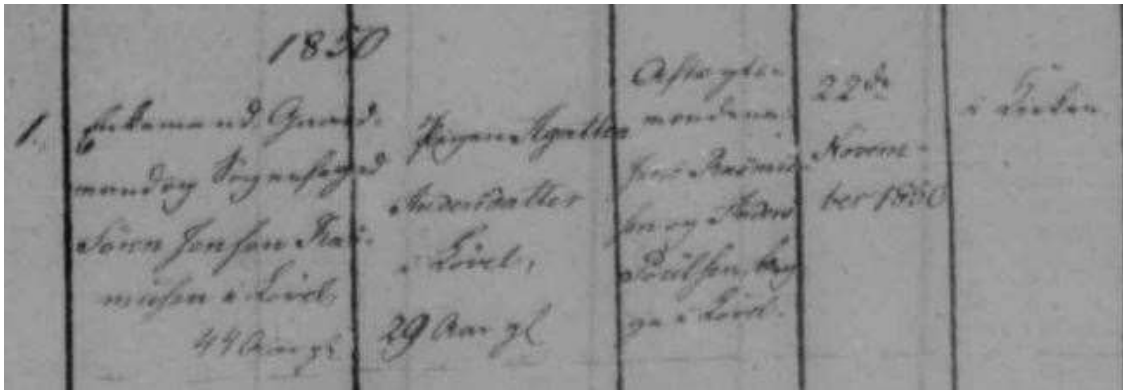 1850
1.
Enkemand Gaard-
mand og Sognefoged
Sören Jensen Ras-
musen i Lövel,
44 Aar gl
Pigen Agathe
Andersdatter
i Lövel,
29 Aar gl
Aftægts-
mændene
Jens Rasmus-
sen og Anders
Poulsen, beg-
ge i Lövel.
22de
Novem-
ber 1850
i Kirken